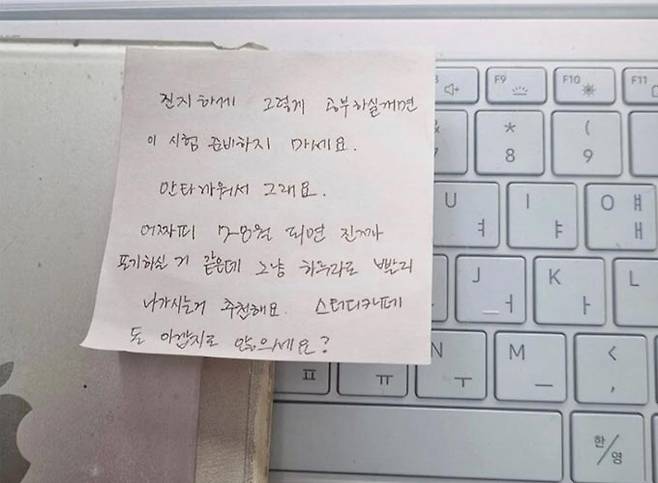 진지하게 그렇게 공부하실꺼면
이 시험 준비하지 마세요.
안타까워서 그래요.
어짜피 7-8월 되면 진짜
포기하실 거 같은데 그냥 하루라도 빨리
나가시는거 추천해요. 스터디카페
돈 아깝지도 않으세요?
F9 F10 F11
* (
8 9
U I O ㅒ
ㅕ ㅑ ㅐ
J K L
ㅓ ㅏ
N M <
ㅍ ㅠ ㅜ ㅡ ,
한/영